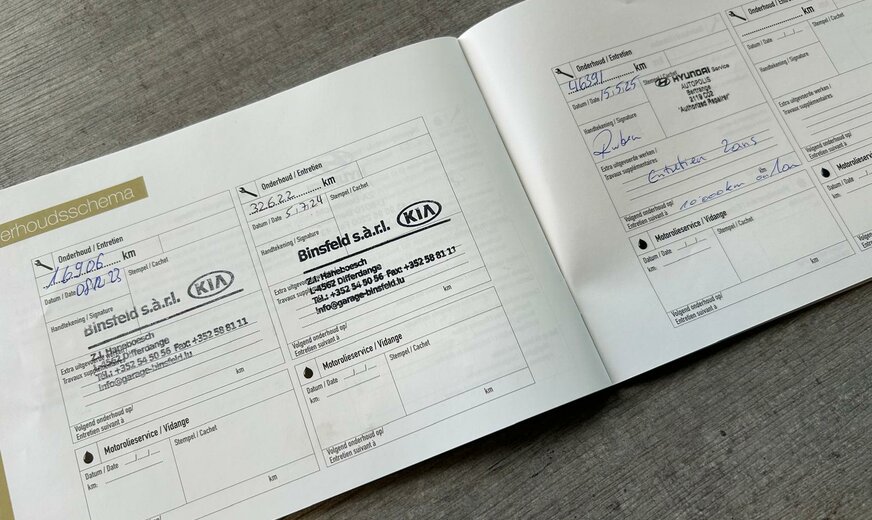 erhoudsschema
Onderhoud / Entretien
16.906 km
Datum / Date 08.12.23 Stempel / Cachet
Handtekening / Signature
Binsfeld s.à r.l. KIA
Z.I. Haneboesch
L-4562 Differdange
Tél.: +352 54 50 56 Fax: +352 58 81 11
info@garage-binsfeld.lu
Extra uitgevoerde
Travaux supplémentaires
Volgend onderhoud op/
Entretien suivant à
Motorolieservice / Vidange
Datum / Date _/_/_ Stempel / Cachet
km:
km
Onderhoud / Entretien
32.622 km
Datum / Date 5.7.24 Stempel / Cachet
Handtekening / Signature
Binsfeld s.à r.l. KIA
Z.I. Haneboesch
L-4562 Differdange
Tél.: +352 54 50 56 Fax: +352 58 81 11
info@garage-binsfeld.lu
Extra uitgevoerde
Travaux
Volgend onderhoud op/
Entretien suivant à
km
Motorolieservice / Vidange
Datum / Date _/_/_ Stempel / Cachet
km:
km
Volgend onderhoud op/
Entretien suivant à
Onderhoud / Entretien
46391 km
Datum / Date 15.5.25 Stempel / Cachet
HYUNDAI Service
AUTOPOLIS
Bertrange
2119 C02
"Authorized Repairer"
Handtekening / Signature
Ruben
Extra uitgevoerde werken /
Travaux supplémentaires
Entretien 2ans
Volgend onderhoud op/
Entretien suivant à
10 000km ou 1an
km
Motorolieservice / Vidange
Datum / Date _/_/_ Stempel / Cachet
km:
km
Volgend onderhoud op/
Entretien suivant à
Onderhoud / Entretien
km
Datum / Date _/_/_ Stempel / Cachet
Handtekening / Signature
Extra uitgevoerde werken /
Travaux supplémentaires
Volgend onderhoud op/
Entretien suivant à
Motorolieservice
Datum / Date _/_/_
km: